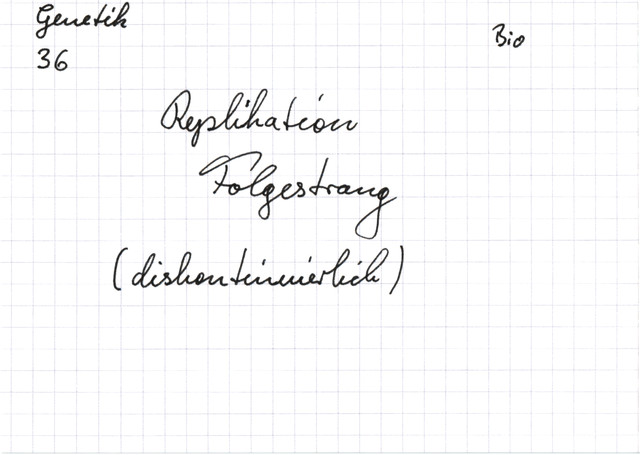 Genetik
Bio
36
Replikation
Folgestrang
(diskontinuierlich)